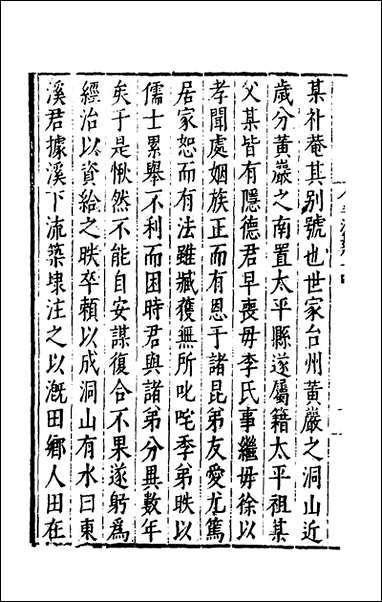 某朴菴其别號也世家台州黃巖之洞山近
歲分黃巖之南置太平縣遂屬籍太平祖某
父某皆有隱德君早喪母李氏事繼母徐以
孝聞處姻族正而有恩于諸昆弟友愛尤篤
居家恕而有法雖臧獲無所叱咤季弟昳以
儒士累舉不利而困時君與諸弟分異數年
矣于是愀然不能自安謀復合不果遂躬為
經治以資給之昳卒頼以成洞山有水曰東
溪君據溪下流築埭注之以漑田鄉人田在